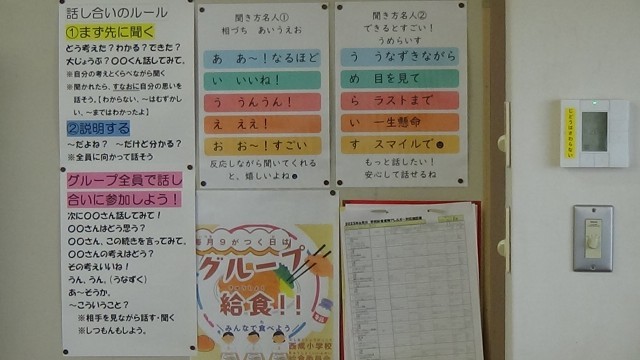 話し合いのルール
①まず先に聞く
どう考えた？わかる？できた？
大じょうぶ？〇〇くん話してみて。
※自分の考えとくらべながら聞く
※聞かれたら、すなおに自分の思いを
話そう。「わからない、～はむずかし
い、～まではわかったよ」
②説明する
～だよね？　～だけど分かる？
※全員に向かって話そう
グループ全員で話し
合いに参加しよう！
次に〇〇さん話してみて！
〇〇さんはどう思う？
〇〇さん、この続きを言ってみて。
〇〇さんの考えはどう？
その考えいいね！
うん、うん。（うなずく）
あ～そうか。
～こういうこと？
※相手を見ながら話す・聞く
※しつもんもしよう。
聞き方名人①
相づち　あいうえお
あ　あ～！なるほど
い　いいね！
う　うんうん！
え　ええ！
お　お～！すごい
反応しながら聞いてくれる
と、嬉しいよね
聞き方名人②
できるとすごい！
うめらいす
う　うなずきながら
め　目を見て
ら　ラストまで
い　一生懸命
す　スマイルで
もっと話したい！
安心して話せるね
毎月９がつく日は
グループ
給食！！
みんなで食べよう
小学校